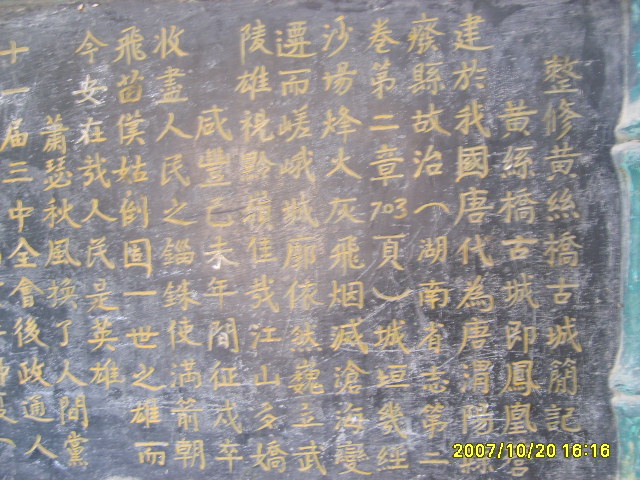 整修黄絲橋古城簡記
黄絲橋古城即鳳凰
建於我國唐代為唐渭陽縣
癈縣故治(湖南省志第二
卷第二章703頁)城垣幾經
沙場烽火灰飛烟滅滄海變
遷而嵯峨城廓依然巍立武
陵雄視黔嶺佳哉江山多嬌
咸豐己未年間征戍卒
收盡人民之錙銖使满前朝
飛茴僕姑倒固一世之雄而
今安在哉人民是英雄
蕭瑟秋風换了人間黨
十一届三中全會後政通人
2007/10/20 16:16